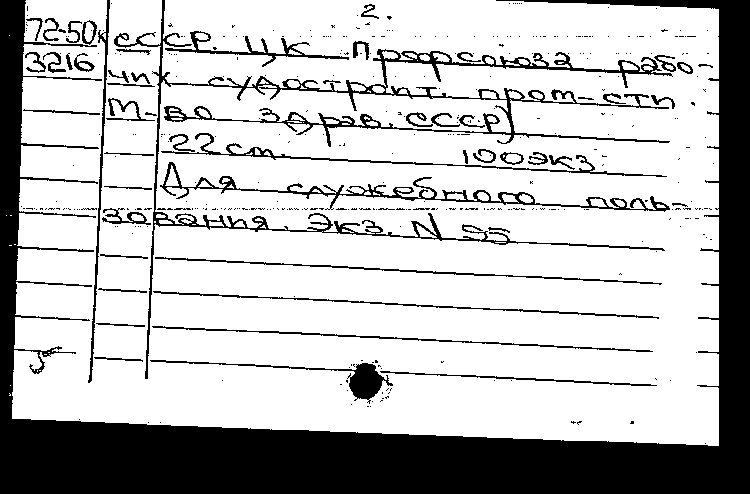 2.
72-50к СССР. ЦК Профсоюза рабо-
3216 чих судостроит. пром-сти.
М-во здрав. СССР)
22 см. 100 экз.
Для служебного поль-
зования. Экз. N 95
5